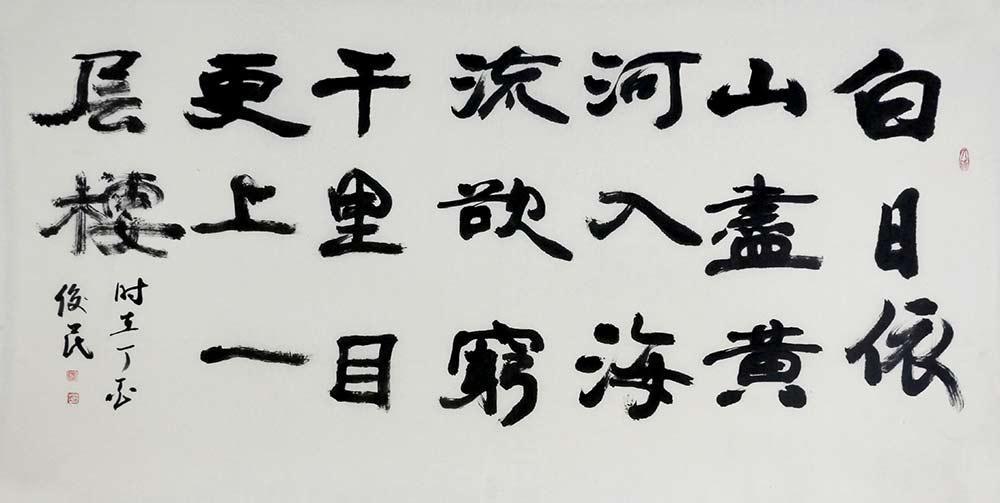 白日依
山盡黄
河入海
流欲窮
千里目
更上一
层樓
时在丁酉
俊民